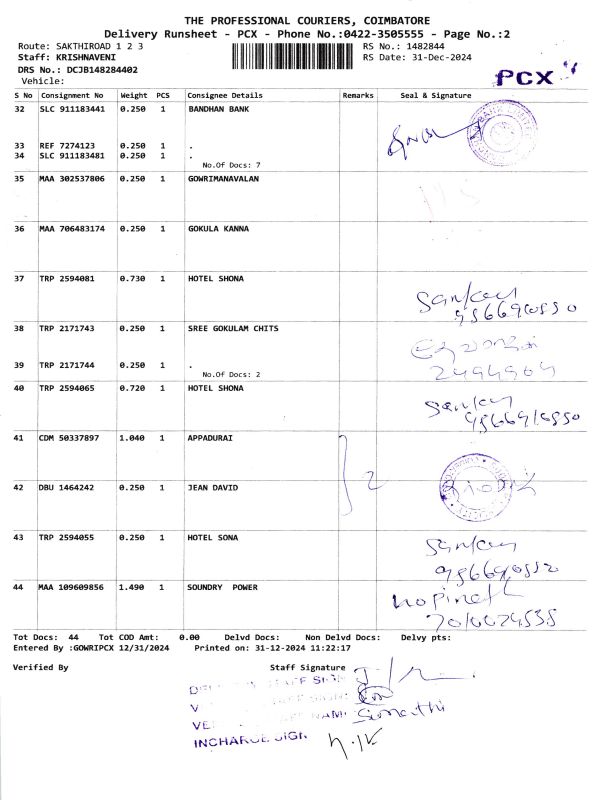 THE PROFESSIONAL COURIERS, COIMBATORE
Delivery Runsheet - PCX - Phone No.:0422-3505555 - Page No.:2
Route: SAKTHIROAD 1 2 3 RS No.: 1482844
Staff: KRISHNAVENI RS Date: 31-Dec-2024
DRS No.: DCJB148284402
Vehicle: PCX
S No Consignment No Weight PCS Consignee Details Remarks Seal & Signature
32 SLC 911183441 0.250 1 BANDHAN BANK
33 REF 7274123 0.250 1 .
34 SLC 911183481 0.250 1 .
No.Of Docs: 7
35 MAA 302537806 0.250 1 GOWRIMANAVALAN
36 MAA 706483174 0.250 1 GOKULA KANNA
37 TRP 2594081 0.730 1 HOTEL SHONA
38 TRP 2171743 0.250 1 SREE GOKULAM CHITS
39 TRP 2171744 0.250 1 .
No.Of Docs: 2
2494964
40 TRP 2594065 0.720 1 HOTEL SHONA
41 CDM 50337897 1.040 1 APPADURAI
2
42 DBU 1464242 0.250 1 JEAN DAVID
43 TRP 2594055 0.250 1 HOTEL SONA
44 MAA 109609856 1.490 1 SOUNDRY POWER
Tot Docs: 44 Tot COD Amt: 0.00 Delvd Docs: Non Delvd Docs: Delvy pts:
Entered By :GOWRIPCX 12/31/2024 Printed on: 31-12-2024 11:22:17
Verified By Staff Signature
STAFF SIGN
NAME Sumathi
INCHARGE SIGN